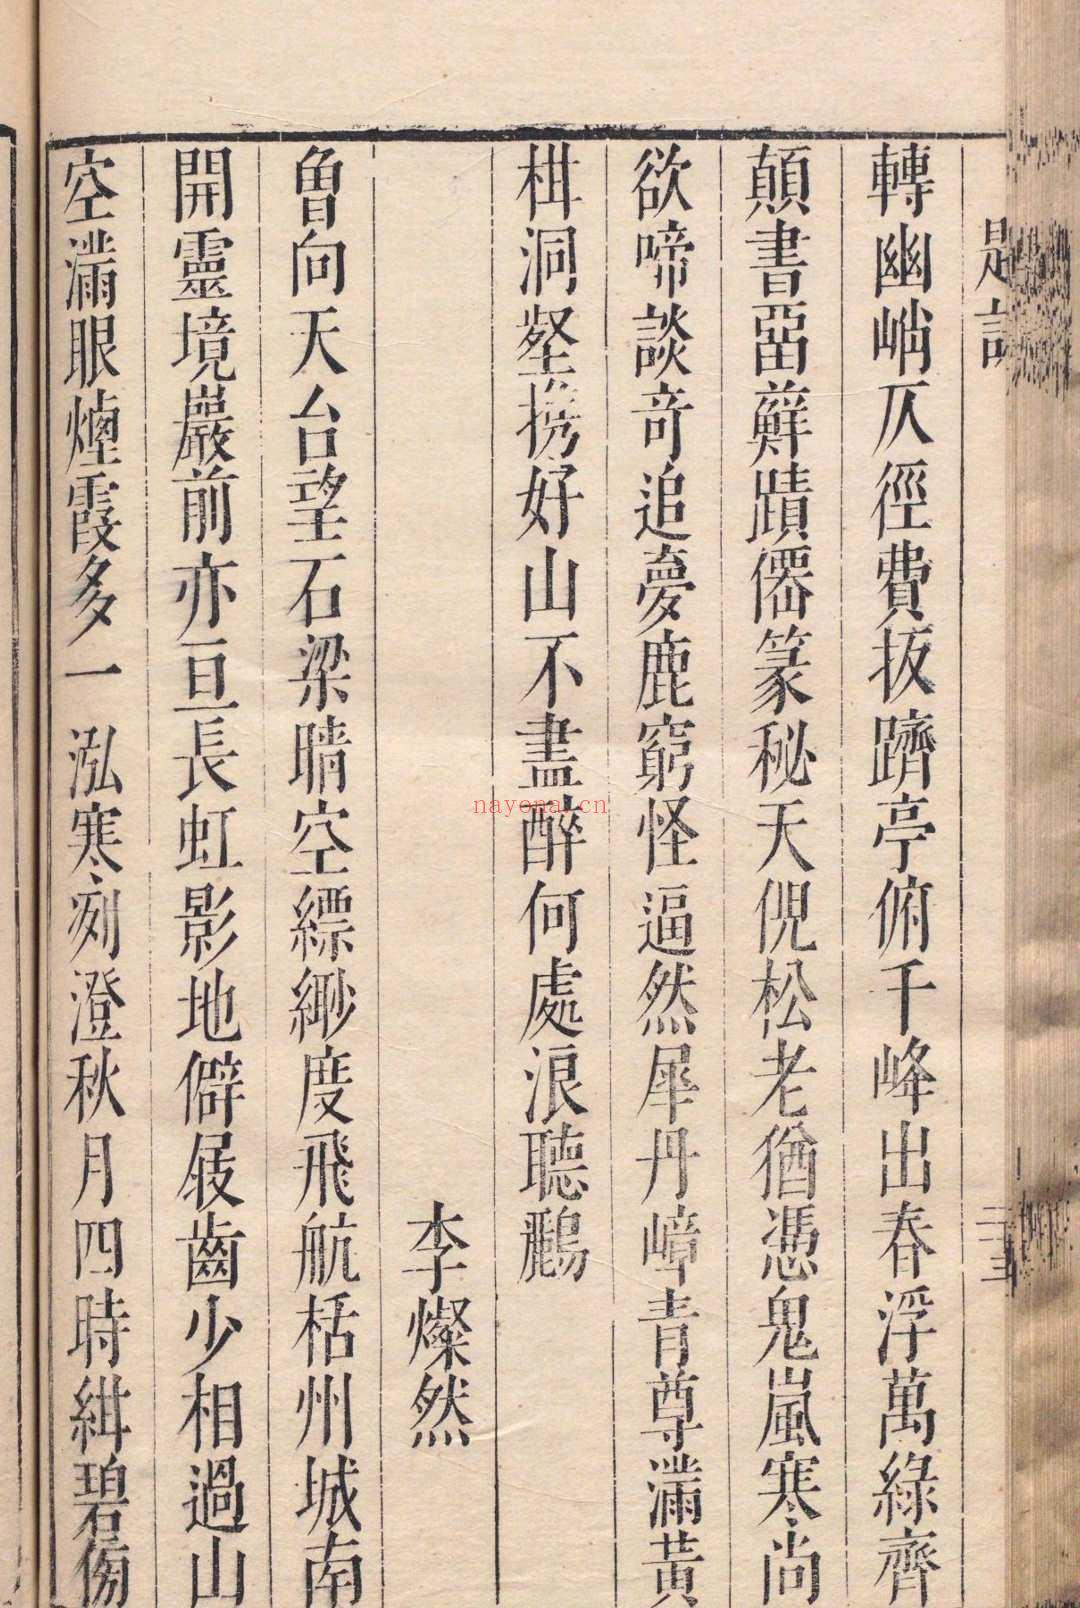 轉幽峭仄徑費扳躋亭俯千峰出春浮萬綠齊
顛書畱蘚蹟僊篆秘天倪松老猶憑鬼嵐寒尚
欲啼談奇追夢鹿窮怪逼然犀丹嶂青尊滿黃
柑洞壑攜好山不盡醉何處浪聽鸝
李燦然
曾向天台望石梁晴空縹緲度飛航栝州城南
開靈境巖前亦亘長虹影地僻屐齒少相過山
空滿眼煙霞多一泓寒冽澄秋月四時紺碧傍
nayona.cn